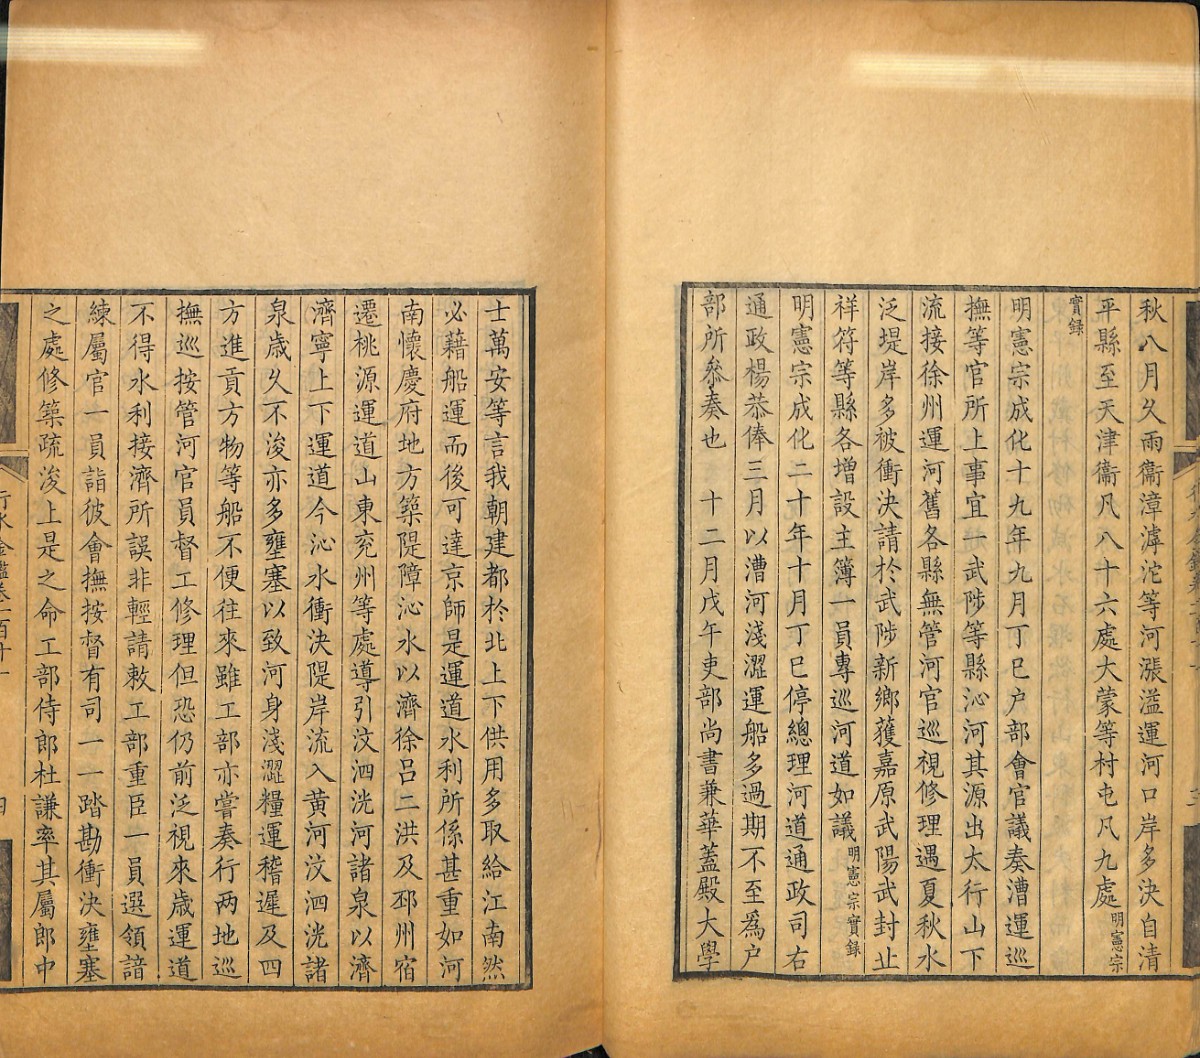 秋八月久雨衞漳滹沱等河漲溢運河口岸多決自清
平縣至天津衞凡八十六處大蒙等村屯凡九處明憲宗
實錄
明憲宗成化十九年九月丁巳户部會官議奏漕運巡
撫等官所上事宜一武陟等縣沁河其源出太行山下
流接徐州運河舊各縣無管河官巡視修理遇夏秋水
泛堤岸多被衝決請於武陟新鄉獲嘉原武陽武封丘
祥符等縣各增設主簿一員專巡河道如議明憲宗實錄
明憲宗成化二十年十月丁巳停總理河道通政司右
通政楊恭俸三月以漕河淺澀運船多過期不至爲户
部所叅奏也　十二月戊午吏部尚書兼華蓋殿大學
士萬安等言我朝建都於北上下供用多取給江南然
必藉船運而後可達京師是運道水利所係甚重如河
南懷慶府地方築隄障沁水以濟徐吕二洪及邳州宿
遷桃源運道山東兖州等處導引汶泗洸河諸泉以濟
濟寧上下運道今沁水衝決隄岸流入黄河汶泗洸諸
泉歲久不浚亦多壅塞以致河身淺澀糧運稽遲及四
方進貢方物等船不便往來雖工部亦嘗奏行两地巡
撫巡按管河官員督工修理但恐仍前泛視來歲運道
不得水利接濟所誤非輕請敕工部重臣一員選領諳
練屬官一員詣彼會撫按督有司一一踏勘衝決壅塞
之處修築疏浚上是之命工部侍郎杜謙率其屬郎中
行水金鑑卷一百十一
四